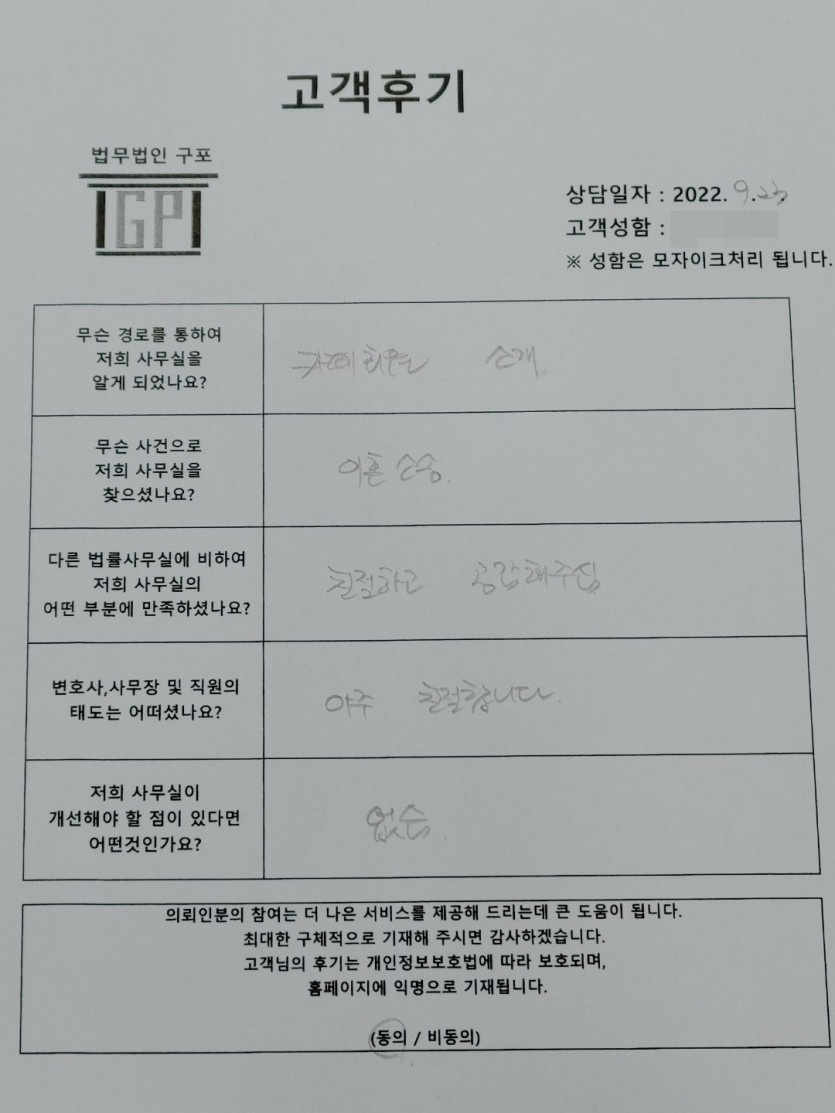 고객후기
법무법인 구포
GP
상담일자 : 2022. 9.23
고객성함 :
※ 성함은 모자이크처리 됩니다.
무슨 경로를 통하여
저희 사무실을
알게 되었나요?
소개.
무슨 사건으로
저희 사무실을
찾으셨나요?
이혼 소송.
다른 법률사무실에 비하여
저희 사무실의
어떤 부분에 만족하셨나요?
친절하고 공감해주심
변호사,사무장 및 직원의
태도는 어떠셨나요?
아주 친절합니다.
저희 사무실이
개선해야 할 점이 있다면
어떤것인가요?
없음.
의뢰인분의 참여는 더 나은 서비스를 제공해 드리는데 큰 도움이 됩니다.
최대한 구체적으로 기재해 주시면 감사하겠습니다.
고객님의 후기는 개인정보보호법에 따라 보호되며,
홈페이지에 익명으로 기재됩니다.
(동의 / 비동의)